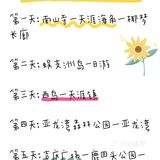 第一天:南山寺一天涯海角一椰梦
长廊
第二天:蜈支洲岛一日游
第三天:西岛一天涯镇
第四天:亚龙湾森林公园一亚龙湾